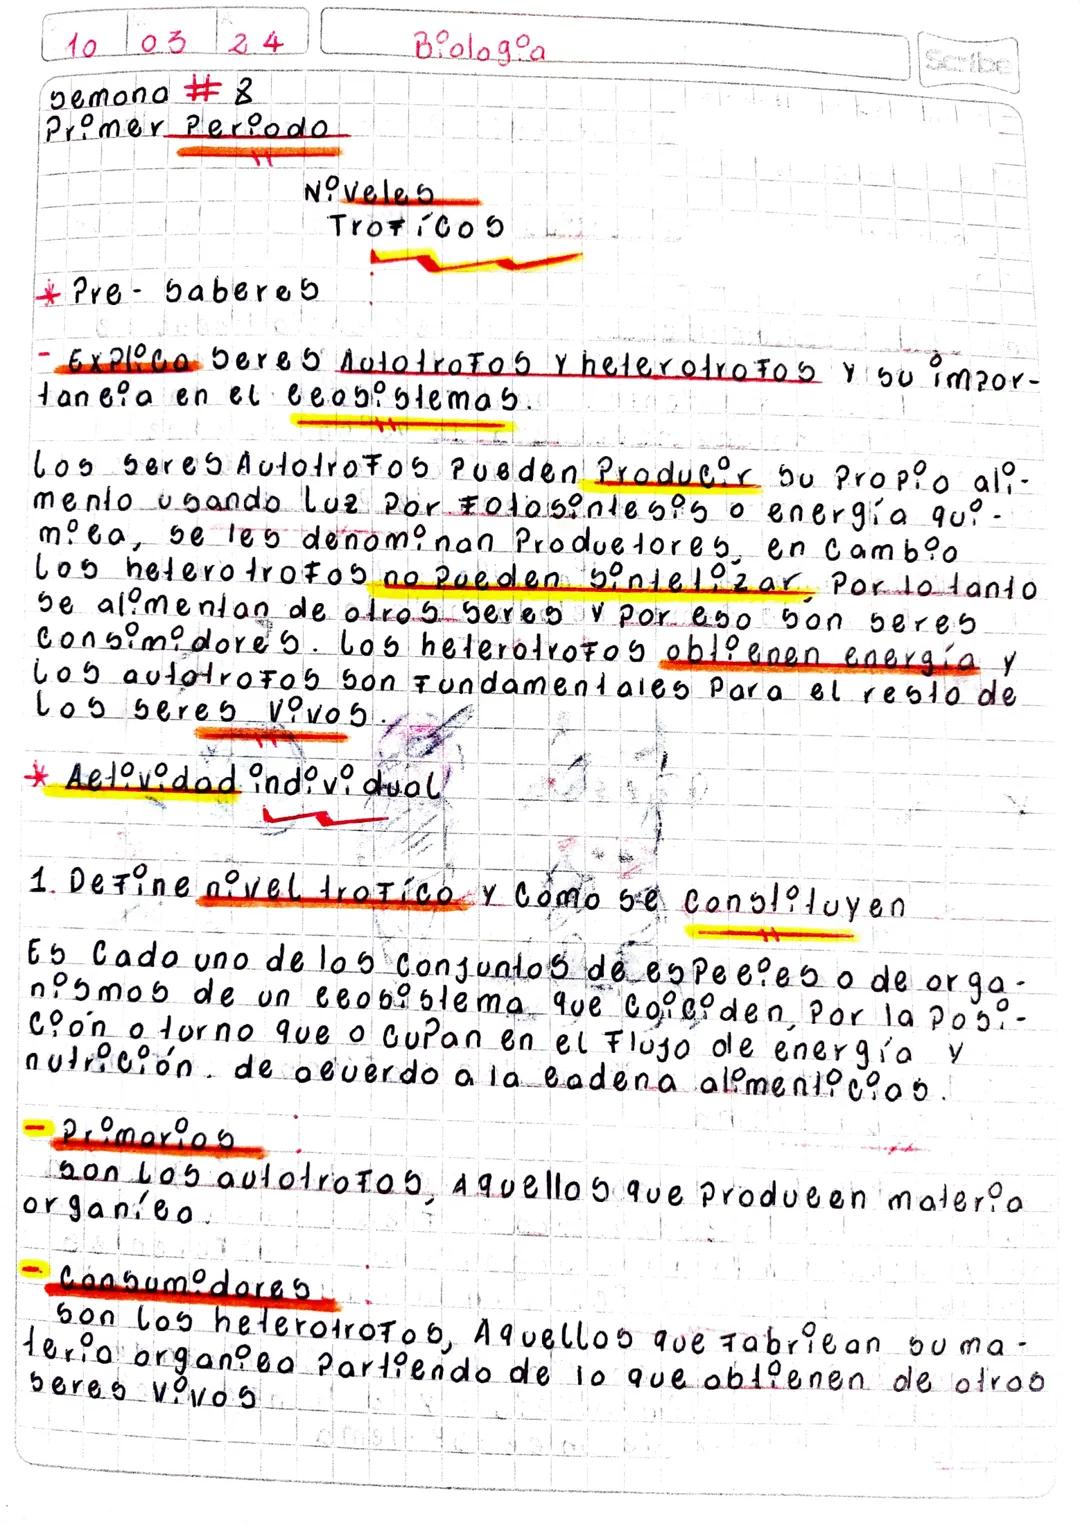 10 03 24 Biología
Scribe
Semana # 8
Primer Periodo
Niveles
Trofícos
* Pre - saberes
- Explica seres Autotrofos y heterotrofos y su impor-
tancia en el ecosistemas.
Los seres Autotrofos pueden Producir su propio ali-
mento usando luz por fotosintesis o energía quí-
mica, se les denominan Productores, en cambio
los heterotrofos no pueden sintetizar, Por lo tanto
se alimentan de otros seres y por eso son seres
consimidores. Los heterotrofos obtienen energía y
los autotrofos son fundamentales para el resto de
los seres vivos.
* Actividad individual
1. Define nivel trofíco y como se constituyen
Es cada uno de los conjuntos de especies o de orga-
nismos de un ecosistema que coiciden, por la posi-
ción o turno que ocupan en el flujo de energía y
nutrición. de acuerdo a la cadena alimenticias.
- Primarios
son los autotrofos, Aquellos que producen materia
organíca.
- Consumidores
son los heterotrofos, Aquellos que fabrican su ma-
teria organica partiendo de lo que obtienen de otros
seres vivos